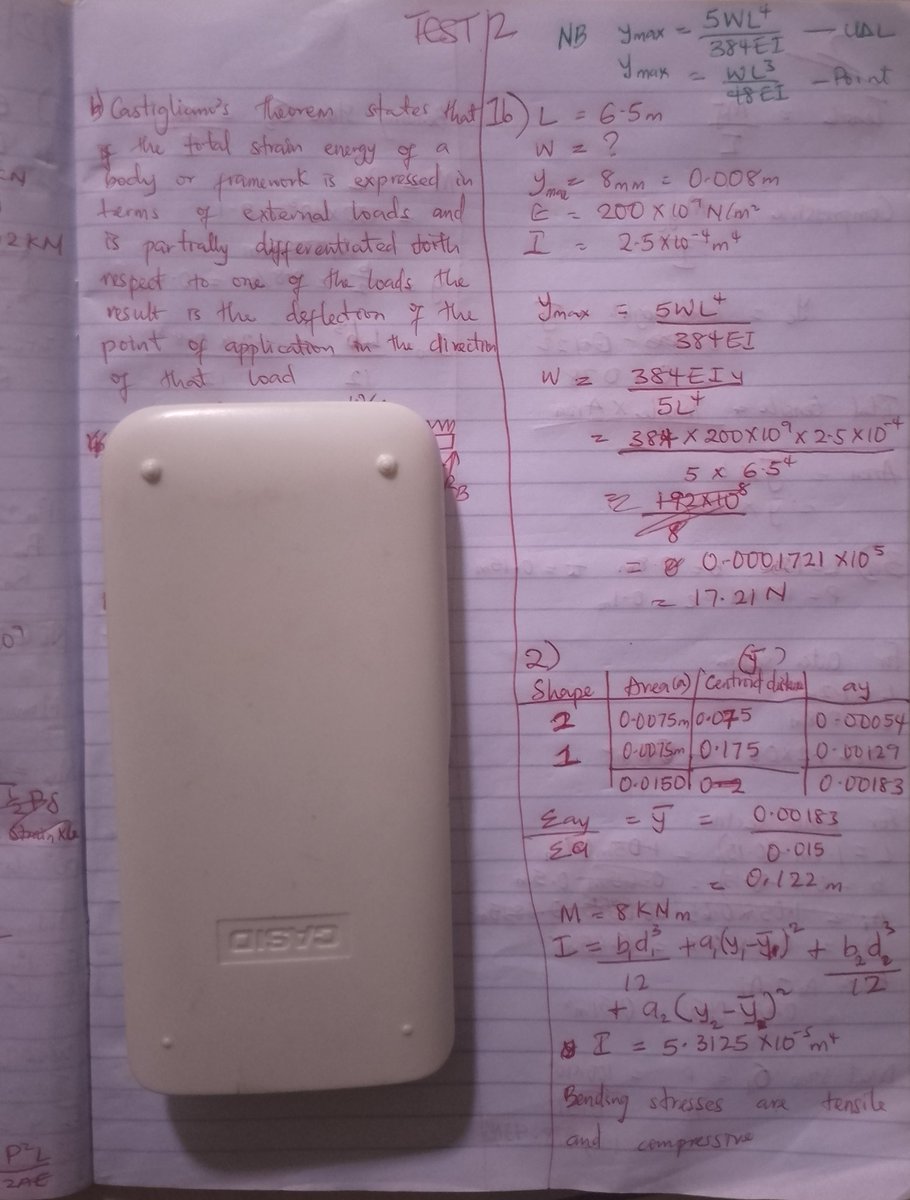 TEST 2
NB ymax = 5WL⁴/384EI — UDL
ymax = WL³/48EI – Point
b) Castigliano's theorem states that
the total strain energy of a
body or framework is expressed in
terms of external loads and
is partially differentiated with
respect to one of the loads the
result is the deflection of the
point of application in the direction
of that load
KN
2KN
B
P²L/2AE
CASIO
1b) L = 6.5m
W = ?
ymax = 8mm = 0.008m
E = 200 × 10⁹ N/m²
I = 2.5×10⁻⁴m⁴
ymax = 5WL⁴/384EI
W = 384EIy/5L⁴
= 384 × 200×10⁹ × 2.5×10⁻⁴/5 × 6.5⁴
= 192×10⁸/8
= 0.0001721 ×10⁵
= 17.21N
2) (ȳ)
Shape Area(a) Centroid distance ay
2 0.0075m 0.075 0.00054
1 0.0075m 0.175 0.00129
0.0150 0.2 0.00183
Σay/Σa = ȳ = 0.00183/0.015
= 0.122m
M = 8KNm
I = b₁d₁³/12 + a₁(y₁-ȳ)² + b₂d₂³/12
+ a₂(y₂-ȳ)²
I = 5.3125 ×10⁻⁵m⁴
Bending stresses are tensile
and compressive